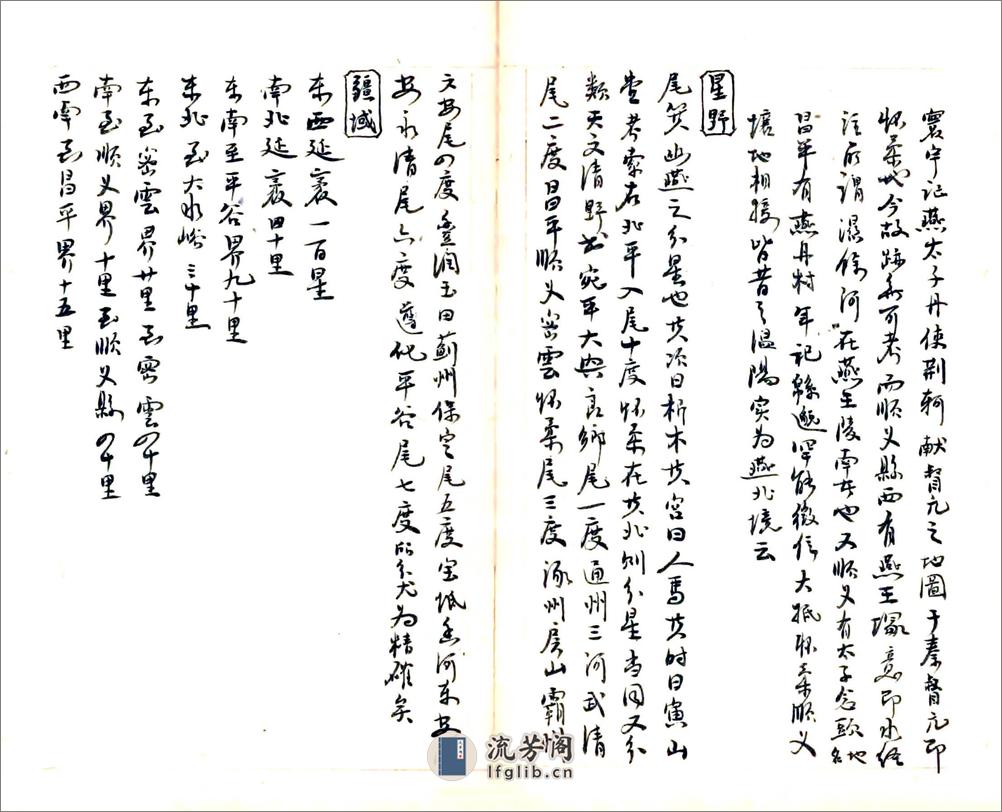 寰宇记燕太子丹使荆轲献督亢之地圖于秦督亢即
怀柔地今故跡無可考而顺义縣西有燕王塚意即水经
注所謂濕馀河在燕王陵南者也又顺义有太子念頭地名
昌平有燕丹村年記緜邈罕能徵信大抵怀柔顺义
壤地相接皆昔之温陽实为燕北境云
星野
尾箕幽燕之分星也其次曰析木其宫曰人馬其时曰寅山
堂考索右北平入尾十度怀柔在其北则分星当同又分
类天文清野书宛平大興良鄉尾一度通州三河武清
尾二度昌平顺义密雲怀柔尾三度涿州房山霸州
文安尾の度豊润玉田薊州保定尾五度宝坻香河东安
安永清尾六度遵化平谷尾七度所分尤为精確矣
疆域
东西延袤一百里
南北延袤四十里
东南至平谷界九十里
东北至大水峪三十里
东至密雲界廿里至密雲の十里
南至顺义界十里至顺义縣の十里
西南至昌平界十五里
流芳阁
lfglib.cn